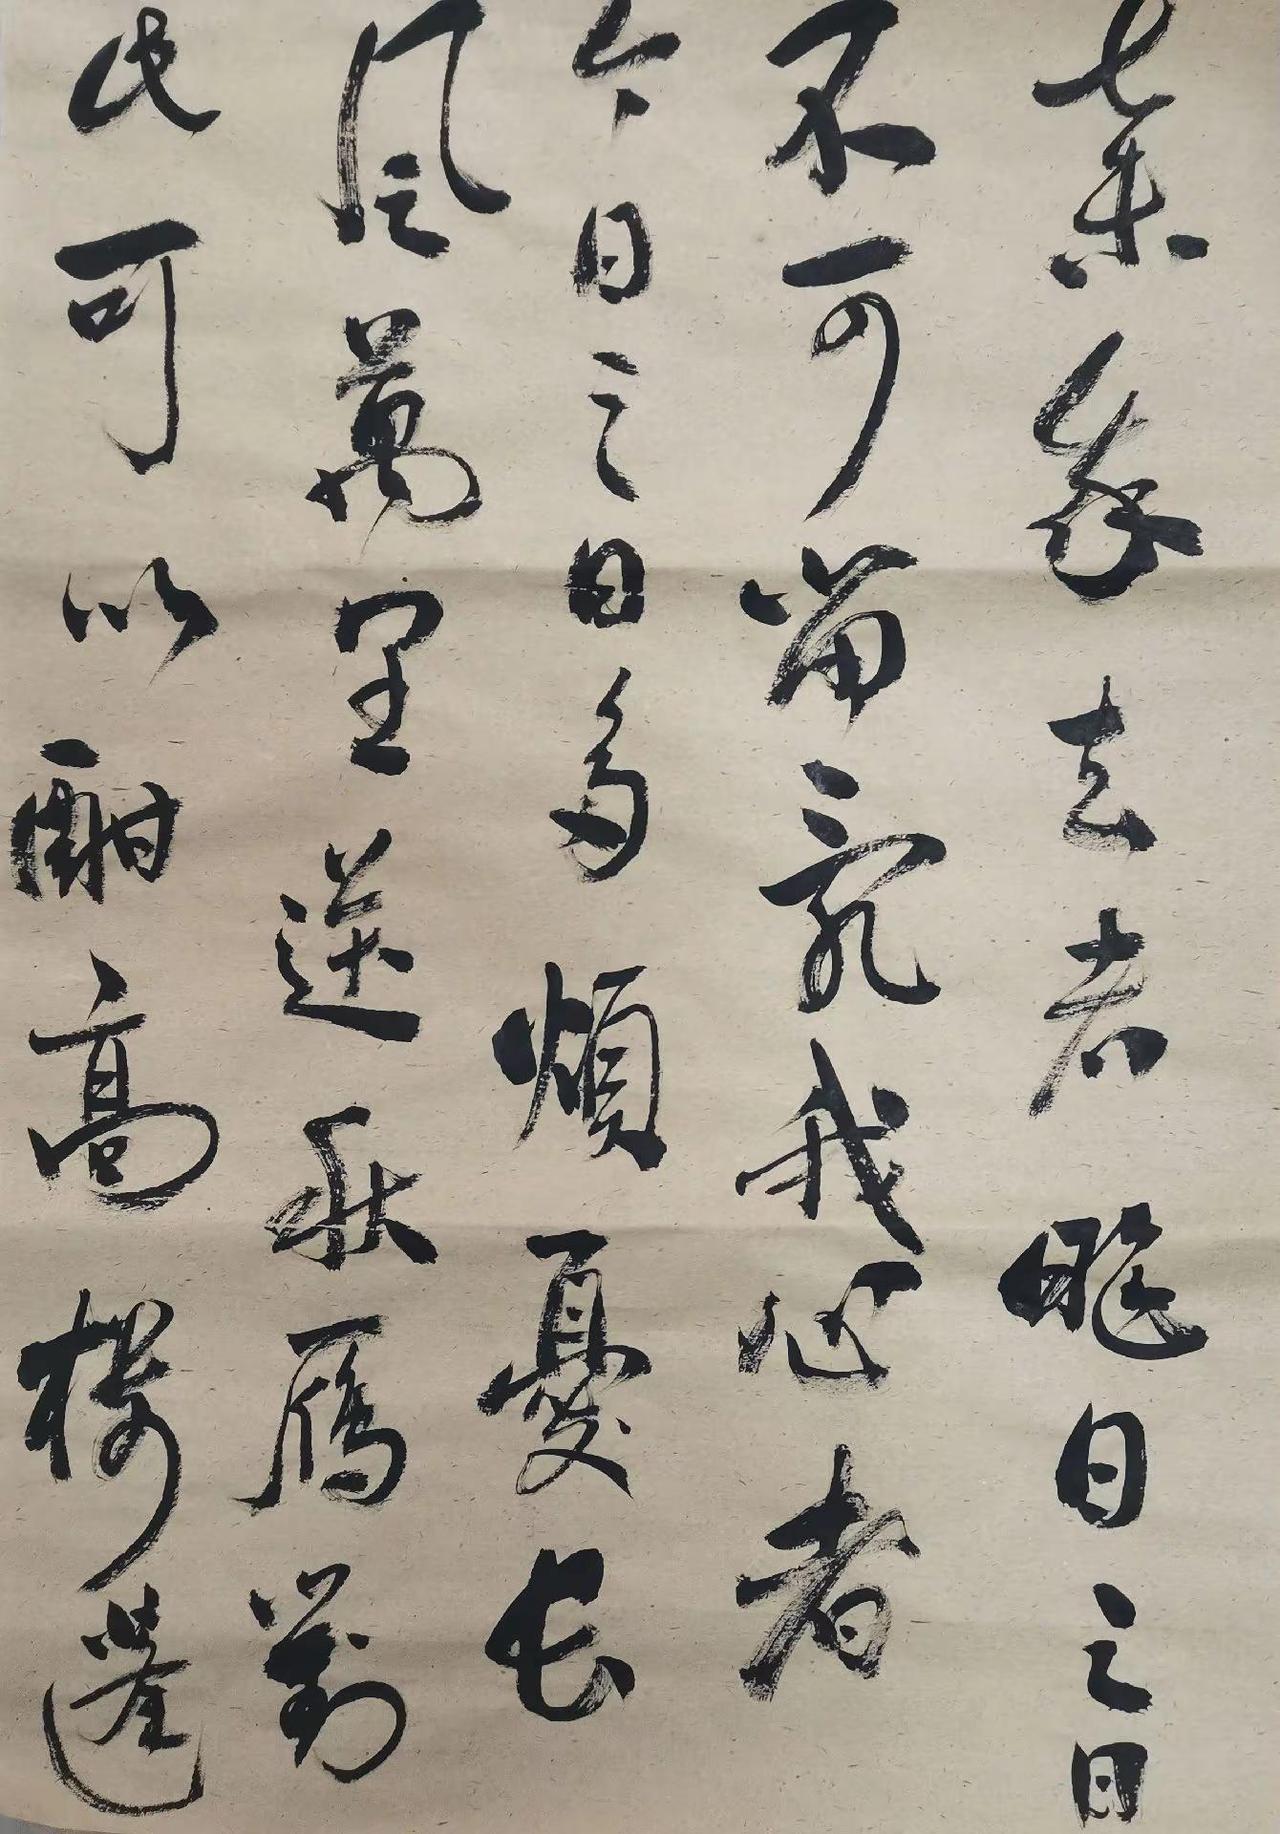 棄我去者昨日之日
不可留亂我心者
今日之日多煩憂長
風萬里送秋雁對
此可以酣高樓蓬